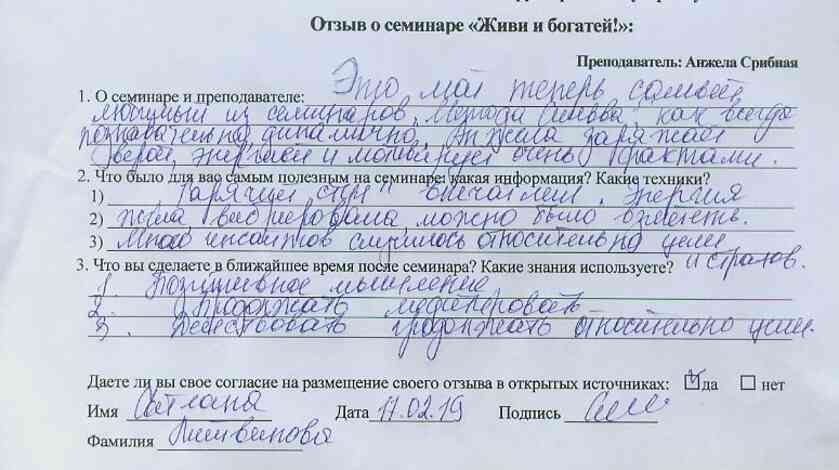 Отзыв о семинаре «Живи и богатей!»:
Преподаватель: Анжела Срибная
1. О семинаре и преподавателе: Это мой теперь самый
любимый из семинаров. как всегда
познавательно, динамично. Анжела заряжает
верой, энергией и мотивирует очень фактами.
2. Что было для вас самым полезным на семинаре: какая информация? Какие техники?
1) "Горячий стул" впечатлил. Энергия
2) можно было
3) Много инсайтов случилось относительно цели
и страхов.
3. Что вы сделаете в ближайшее время после семинара? Какие знания используете?
1. Позитивное мышление
2. Продолжать медитировать
3. Действовать продолжать относительно цели.
Даете ли вы свое согласие на размещение своего отзыва в открытых источниках: ☑ да ☐ нет
Имя Дата 17.02.19 Подпись
Фамилия Литвинова